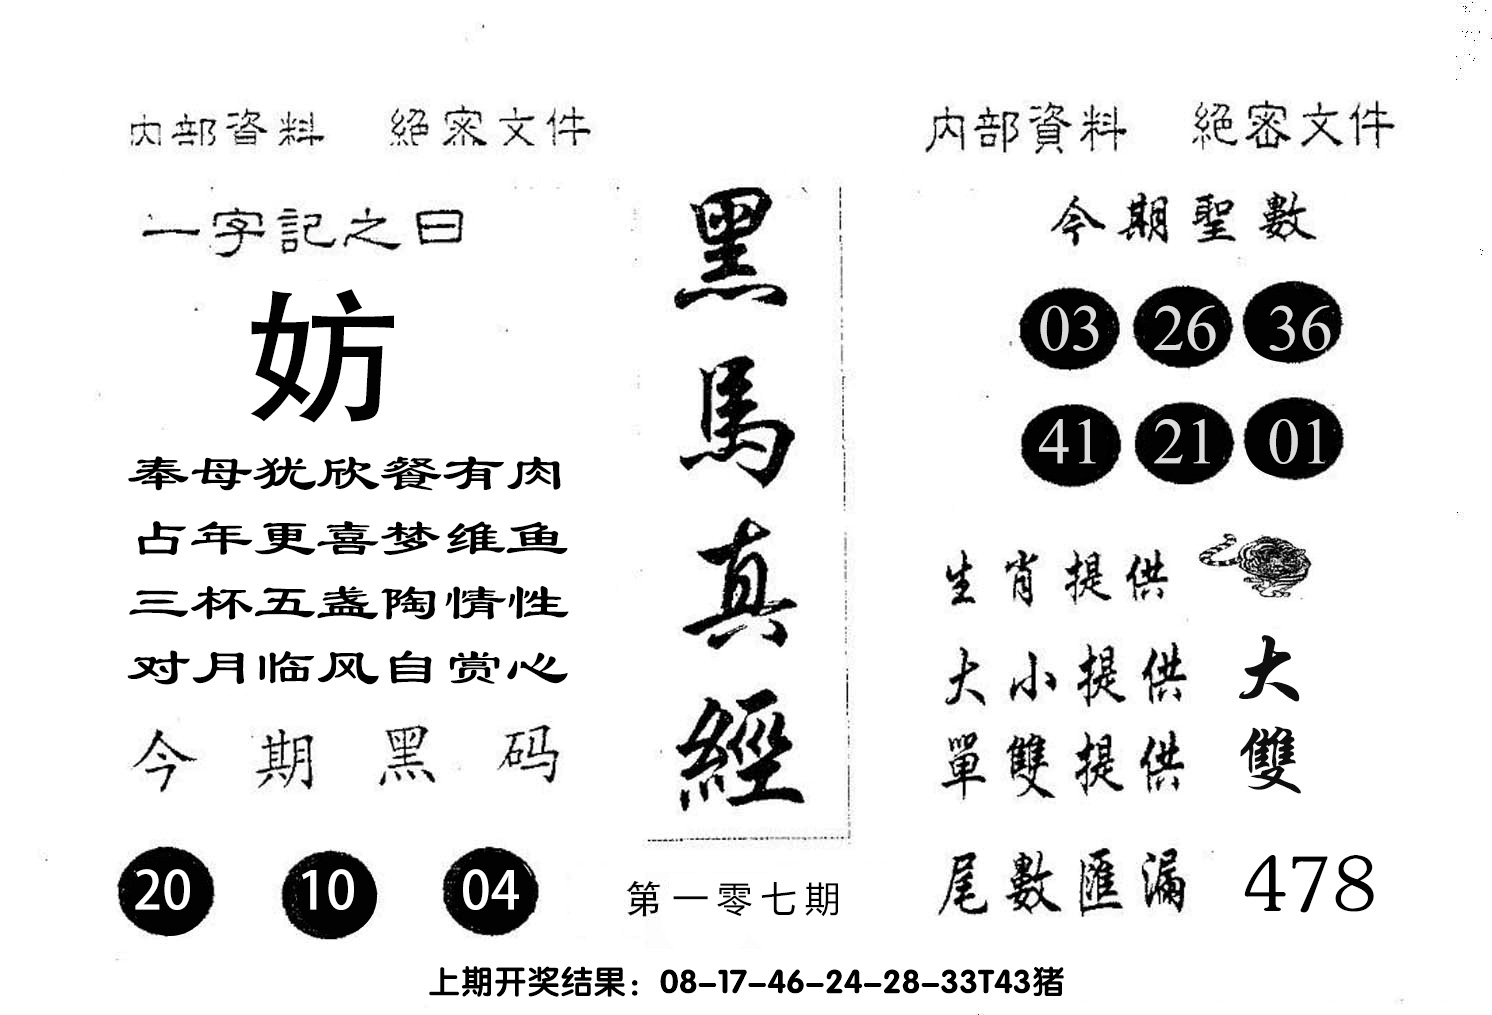 内部資料 絕密文件
一字記之曰
妨
奉母犹欣餐有肉
占年更喜梦维鱼
三杯五盏陶情性
对月临风自赏心
今期黑码
20 10 04
黑馬真經
第一零七期
内部資料 絕密文件
今期聖數
03 26 36
41 21 01
生肖提供
大小提供 大
單雙提供 雙
尾數匯漏 478
上期开奖结果：08-17-46-24-28-33T43猪